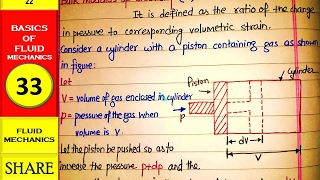 22
BASICS
OF FLUID
MECHANICS
33
FLUID
MECHANICS
SHARE
Bulk modulus of
It is defined as the ratio of the change
in pressure to corresponding volumetric strain.
Consider a cylinder with a piston containing gas as shown
in figure:
Let
V = volume of gas enclosed in cylinder
p = pressure of the gas when
volume is V
Let the piston be pushed so as to
increase the pressure p+dp and the
Piston
cylinder
p
dV
V